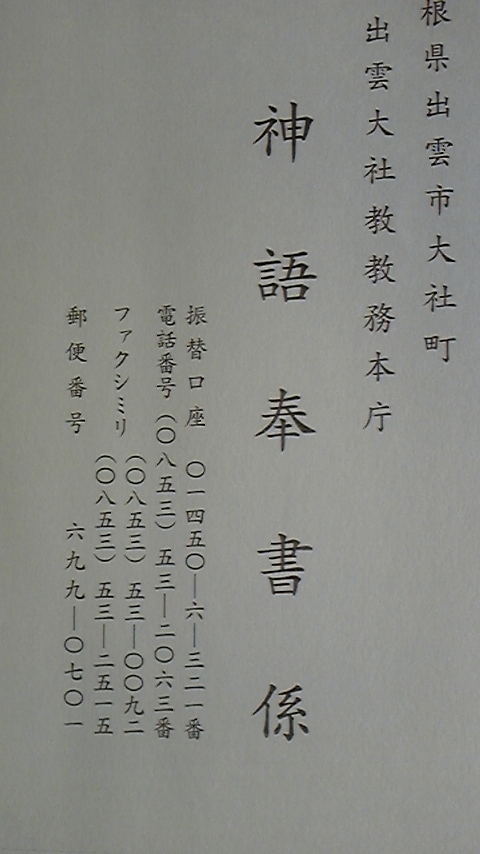 根県出雲市大社町
出雲大社教教務本庁
神語奉書係
振替口座 〇一四五〇―六―三二一番
電話番号(〇八五三)五三―二〇六三番
(〇八五三)五三―〇〇九二
ファクシミリ(〇八五三)五三―二五一五
郵便番号 六九九―〇七〇一